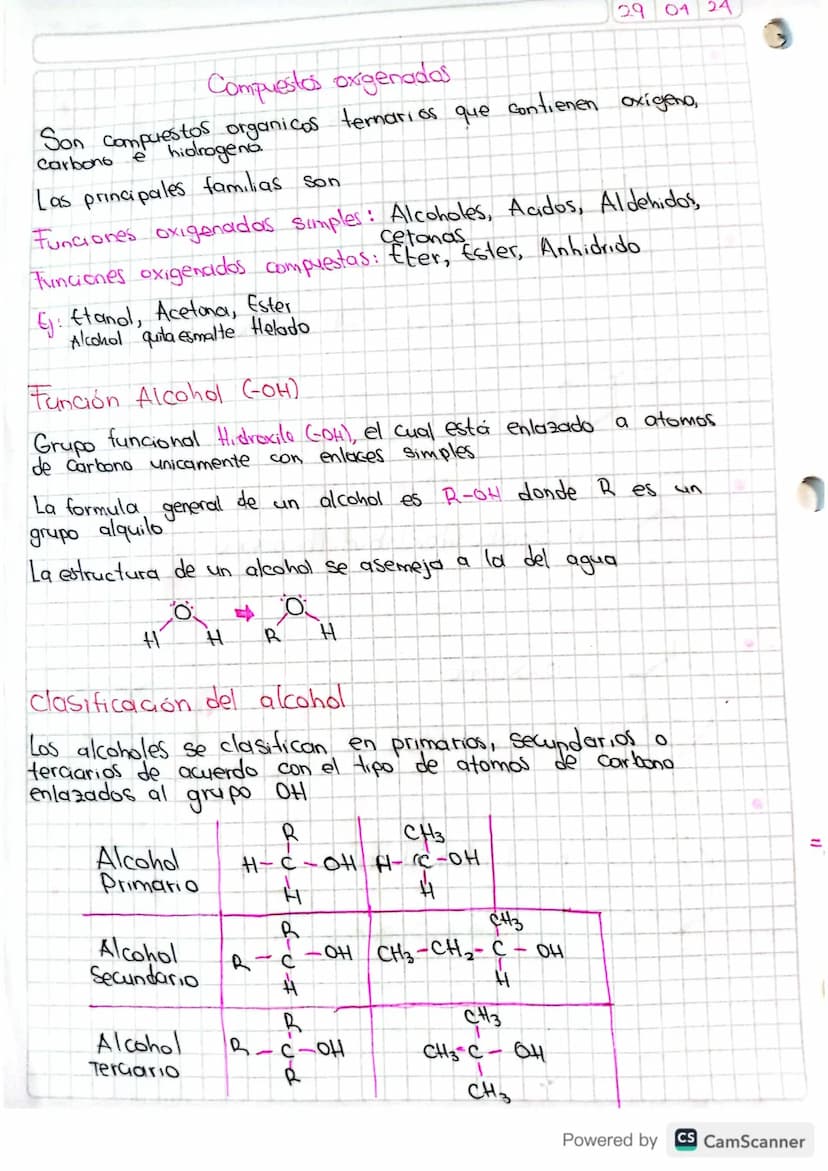 29 01 24
Compuestos oxgenados
Son compuestos organicos ternarios que contienen oxígeno,
carbono e hidrogeno
Las principales familias son
Funciones oxigenadas simples: Alcoholes, Acidos, Aldehidos,
cetonas
Funciones oxigenados compuestas: Eter, Ester, Anhidrido
Ej: Etanol, Acetona, Ester
Alcohol quita esmalte Helado
Función Alcohol (-OH)
Grupo funcional Hidroxilo (-OH), el cual está enlazado a atomos
de carbono unicamente con enlaces simples
La formula general de un alcohol es R-OH donde R es un
grupo alquilo
La estructura de un alcohol se asemeja a la del agua
O ⇒ O
H H R H
Clasificación del alcohol
Los alcoholes se clasifican en primarios, secundarios o
terciarios de acuerdo con el tipo de atomos de carbono
enlazados al grupo OH
R CH3
Alcohol H-C-OH H-C-OH
Primario H H
R CH3
Alcohol R-C-OH CH3-CH2-C-OH
Secundario H H
R CH3
Alcohol R-C-OH CH3-C-OH
Terciario R CH3
=
Powered by CS CamScanner